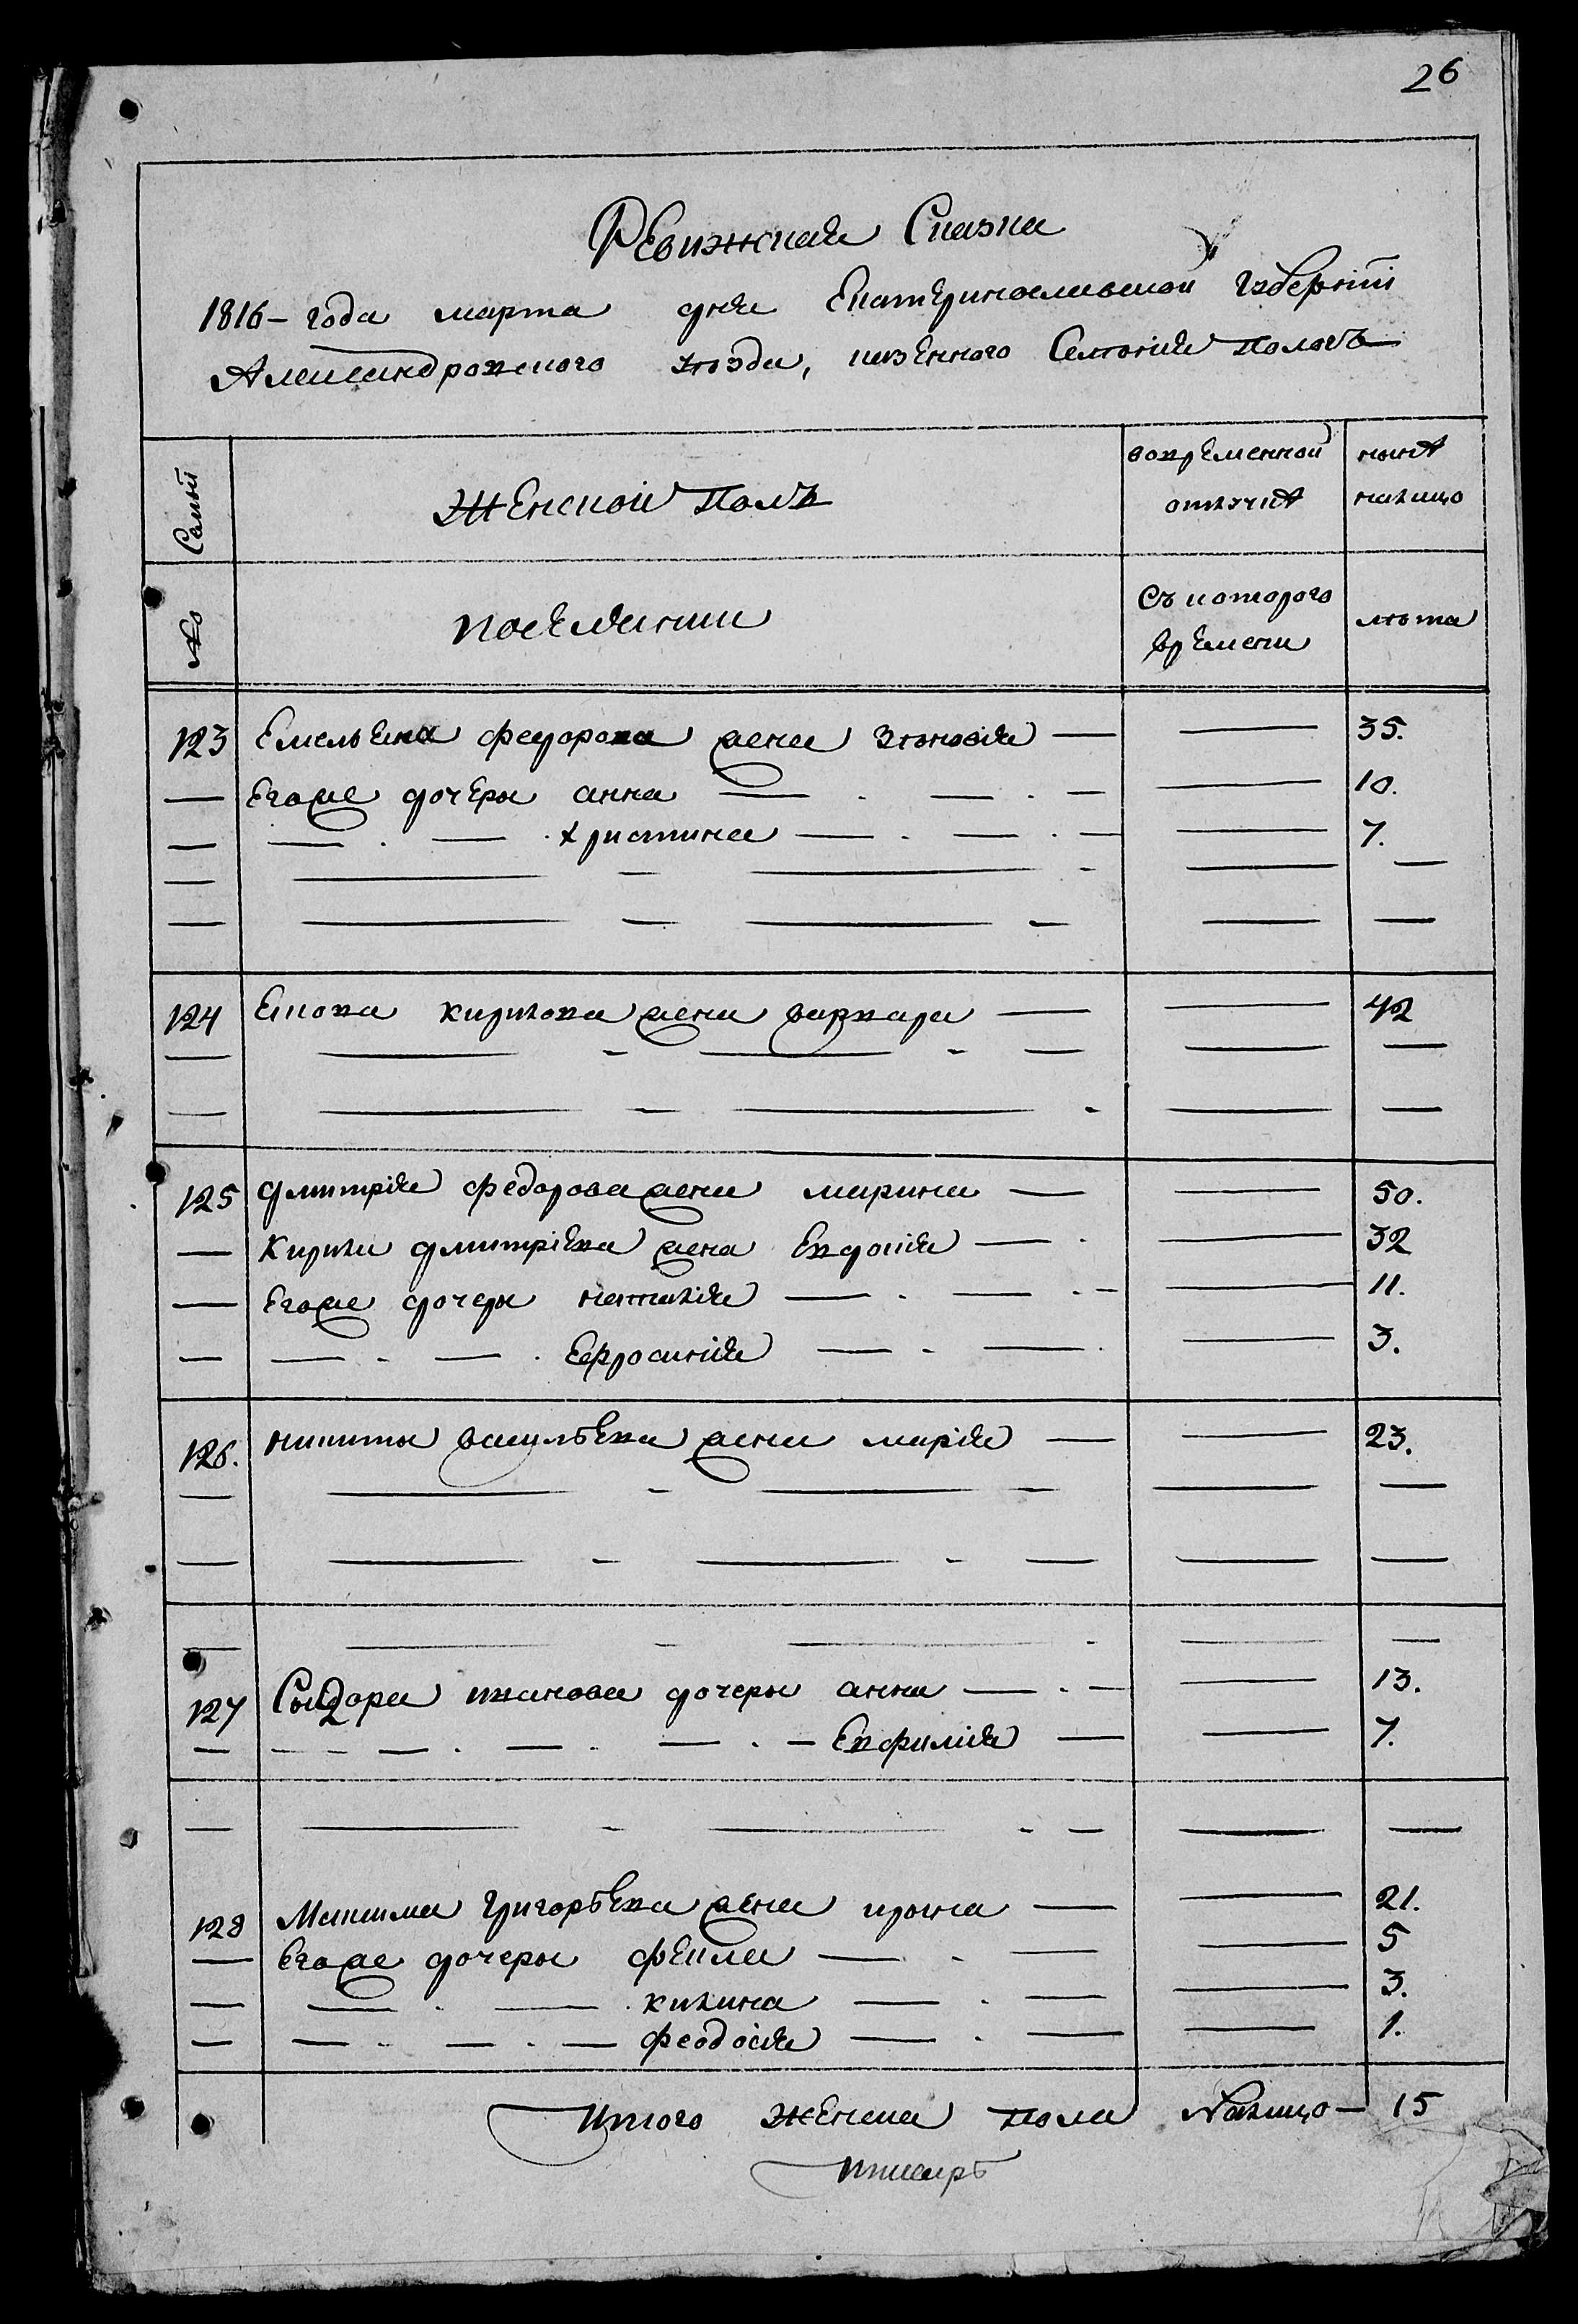 26
Ревижская Сказка
1816 - года марта дня Екатеринославской губернiи
Александровского уезда, казенного Селения Пологъ
Семьи
Женской Полъ
вовременной отлучке
ныне налицо
№
поселянки
Съ которого времени
лета
123 Емельяна федорова жена зѣновiя — — 35.
— Егоже дочеры анна — . — . — — 10.
— — . — . христина — . — . — — 7.
— — — — - — —
— — — — - — —
124 Якова кирилова жена варвара — — 42
— — - — - — — —
— — - — - — —
125 дмитрiя федорова жена марина — — 50.
— Кирила дмитрiева жена Евдокiя — . — 32
— Егоже дочеры наталiя — . — . — — 11.
— — . — . Ефросинiя — . — . — 3.
126. никиты васильева жена марiя — — 23.
— — - — - — —
— — - — - — — —
— — - — - — —
127 Сидора иванова дочеры анна — . — — 13.
— — — — . — . — . — Евфимiя — — 7.
— — - — - — — —
128 Максима григорьева жена ирина — — 21.
— Егоже дочеры фекла — . — — 5
— — . — . килина — . — — 3.
— — . — . — феодосiя — . — — 1.
Итого Женска пола Налицо — 15
писарь